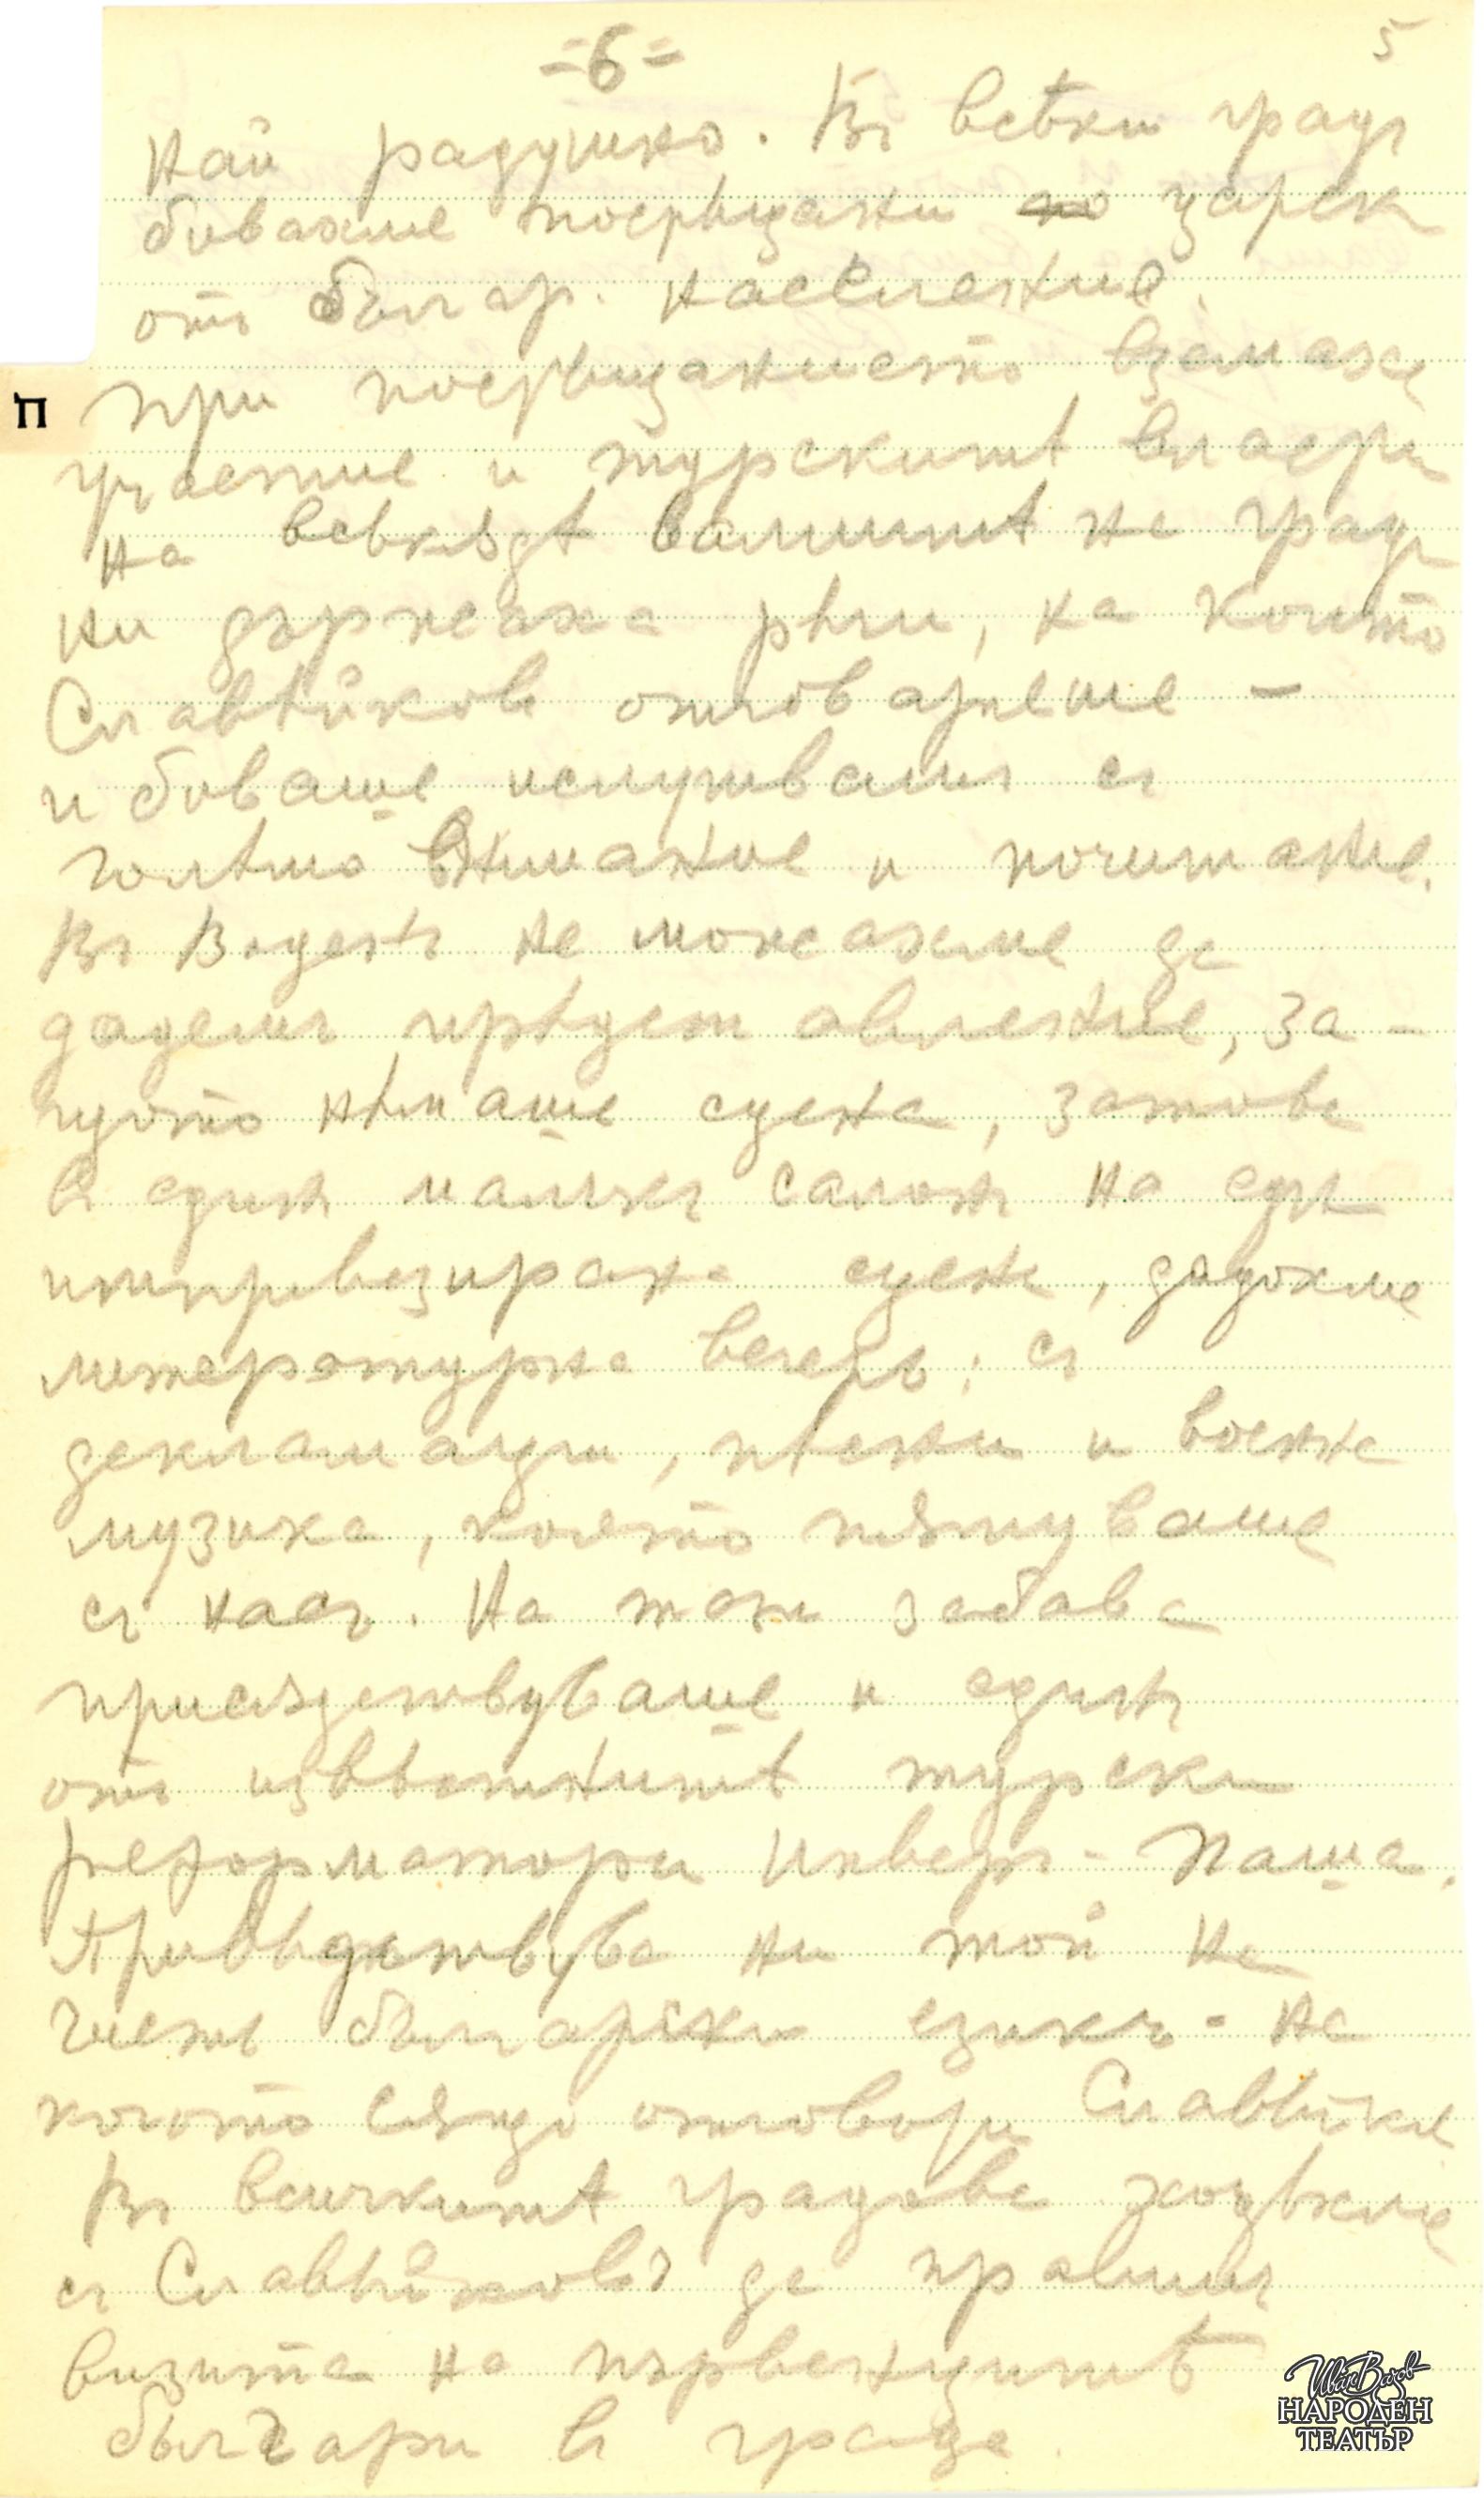 -6- 5
най радушно. Въ всѣки градъ
бивахме посрѣщани по царск
отъ българ. население.
П При посрѣщанието вземаха
участие и турскитѣ власти
на всѣкѫдѣ валиитѣ на градо
ни държеха рѣчи, на които
Славѣйковъ отговаряше –
и биваше изслушванъ съ
голѣмо внимание и почитание.
Въ Воденъ не можахме да
дадемъ прѣдставление, за-
щото нѣмаше сцена, затова
въ единъ малъкъ салонъ на една
импровизирана сцена, дадохме
литературна вечеръ; съ
декламации, пѣсни и военна
музика, която пѫтуваше
съ насъ. На тази забава
присѫдствуваше и единъ
отъ извѣстнитѣ турски
реформатори Инверъ-Паша.
Привѣтствува ни той на
чистъ български езикъ - на
когото сѫщо отговори Славѣйко
Въ всичкитѣ градове ходѣхме
съ Славѣйковъ да правимъ
визита на първенцитѣ
българи въ града.
Иван Вазов
НАРОДЕН
ТЕАТЪР